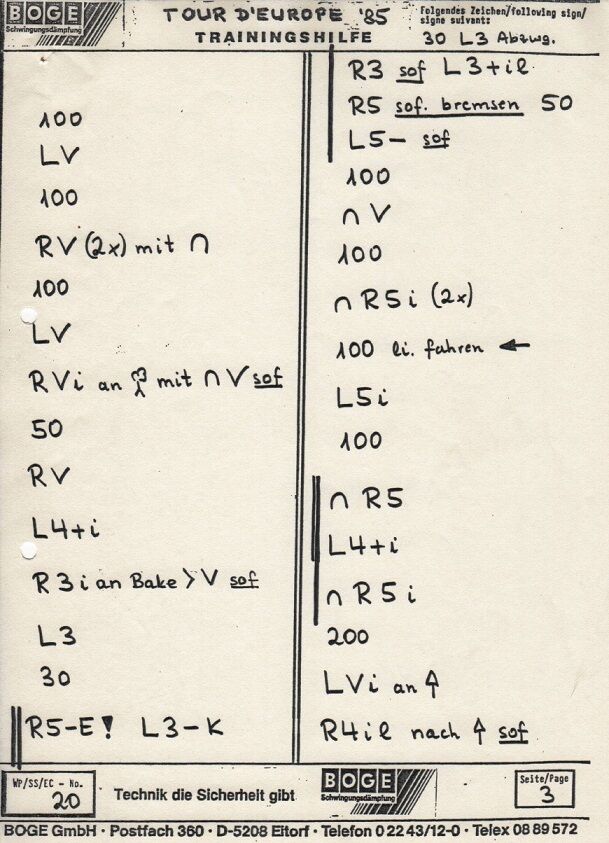 BOGE
Schwingungsdämpfung
TOUR D'EUROPE '85
TRAININGSHILFE
Folgendes Zeichen/following sign/
signe suivant:
30 L3 Abzwg.
100
LV
100
RV (2x) mit ∩
100
LV
RVi an mit ∩ V sof
50
RV
L4+i
R3i an Bake > V sof
L3
30
R5-E! L3-K
R3 sof L3+il
R5 sof. bremsen 50
L5- sof
100
∩ V
100
∩ R5i (2x)
100 li. fahren ←
L5i
100
∩ R5
L4+i
∩ R5i
200
LVi an ↑
R4il nach ↑ sof
WP/SS/EC - No.
20
Technik die Sicherheit gibt
BOGE
Schwingungsdämpfung
Seite/Page
3
BOGE GmbH · Postfach 360 · D-5208 Eitorf · Telefon 0 22 43/12-0 · Telex 08 89 572